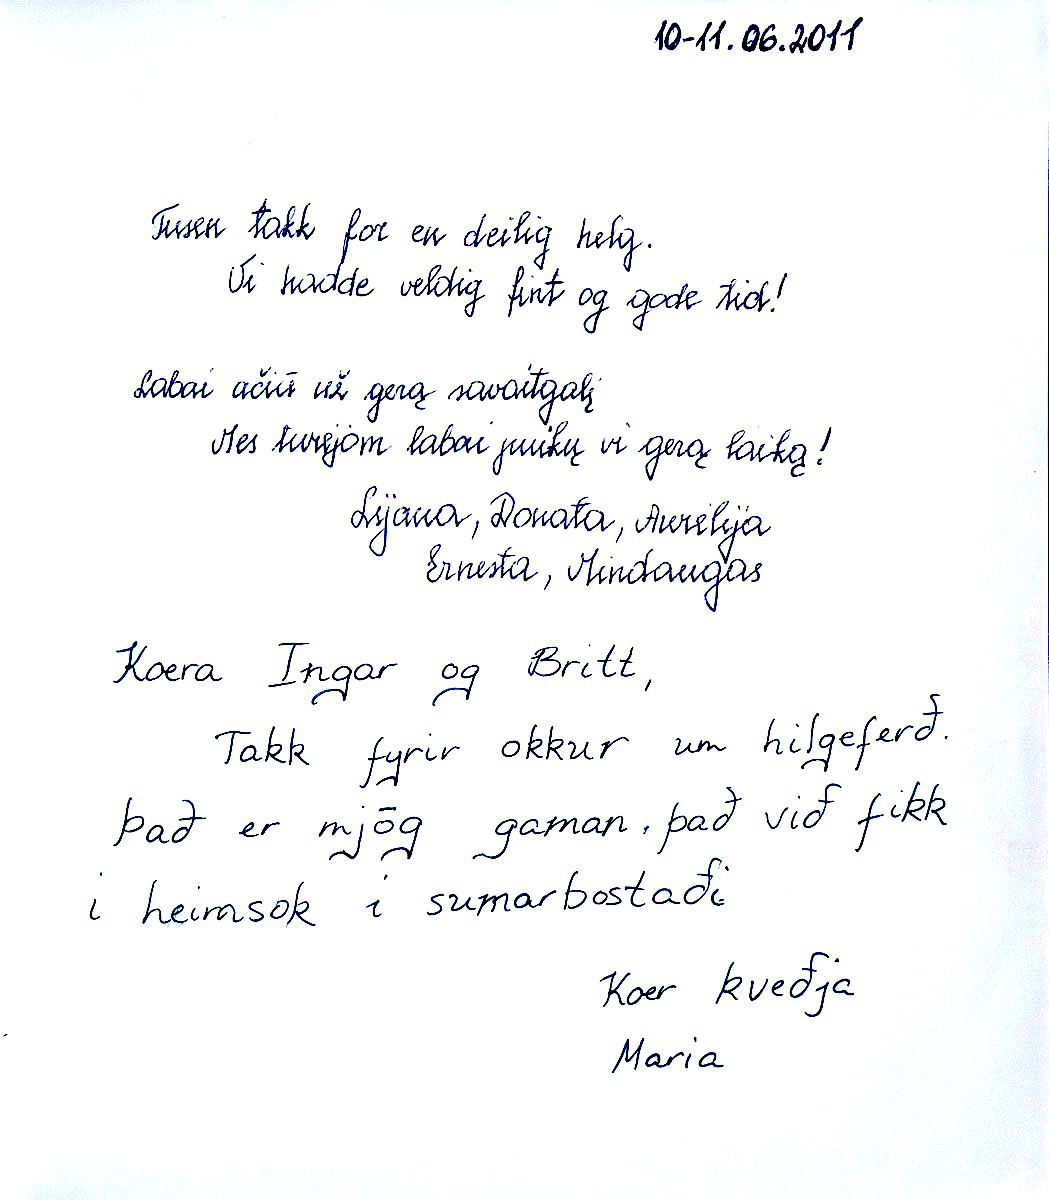 10-11.06.2011
Tusen takk for en deilig helg.
Vi hadde veldig fint og gode tid!
Labai ačiū už gerą savaitgalį
Mes turėjom labai puikų ir gerą laiką!
Lijana, Donata, Aurelija
Ernesta, Mindaugas
Koera Ingar og Britt,
Takk fyrir okkur um hilgeferð.
það er mjōg gaman, það við fikk
i heimsok i sumarbostaði
Koer kveðja
Maria